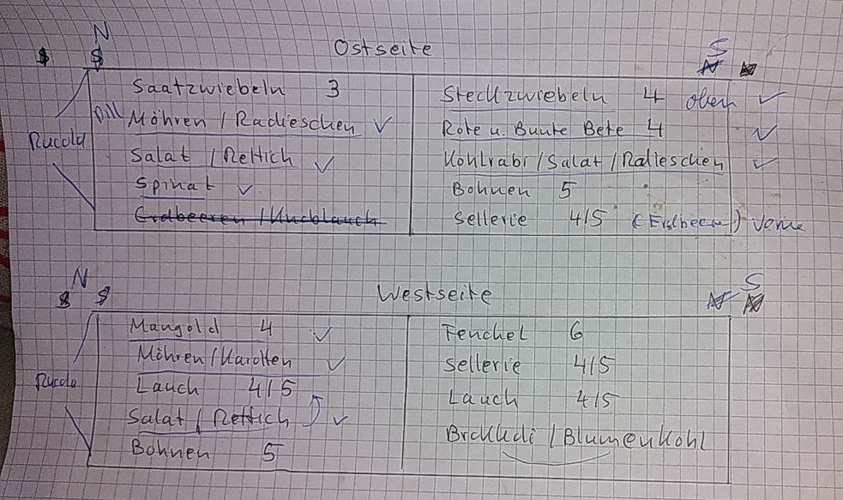 N Ostseite S
Saatzwiebeln 3
Steckzwiebeln 4 oben ✓
Dill Möhren / Radieschen ✓
Rote u. Bunte Bete 4 ✓
Rucola
Salat / Rettich ✓
Kohlrabi / Salat / Radieschen ✓
Spinat ✓
Bohnen 5
Erdbeeren / Knoblauch
Sellerie 4/5 (Erdbeeren) vorne
N Westseite S
Mangold 4 ✓
Fenchel 6
Möhren / Karotten ✓
Sellerie 4/5
Rucola
Lauch 4/5
Lauch 4/5
Salat / Rettich ✓
Brokkoli / Blumenkohl
Bohnen 5